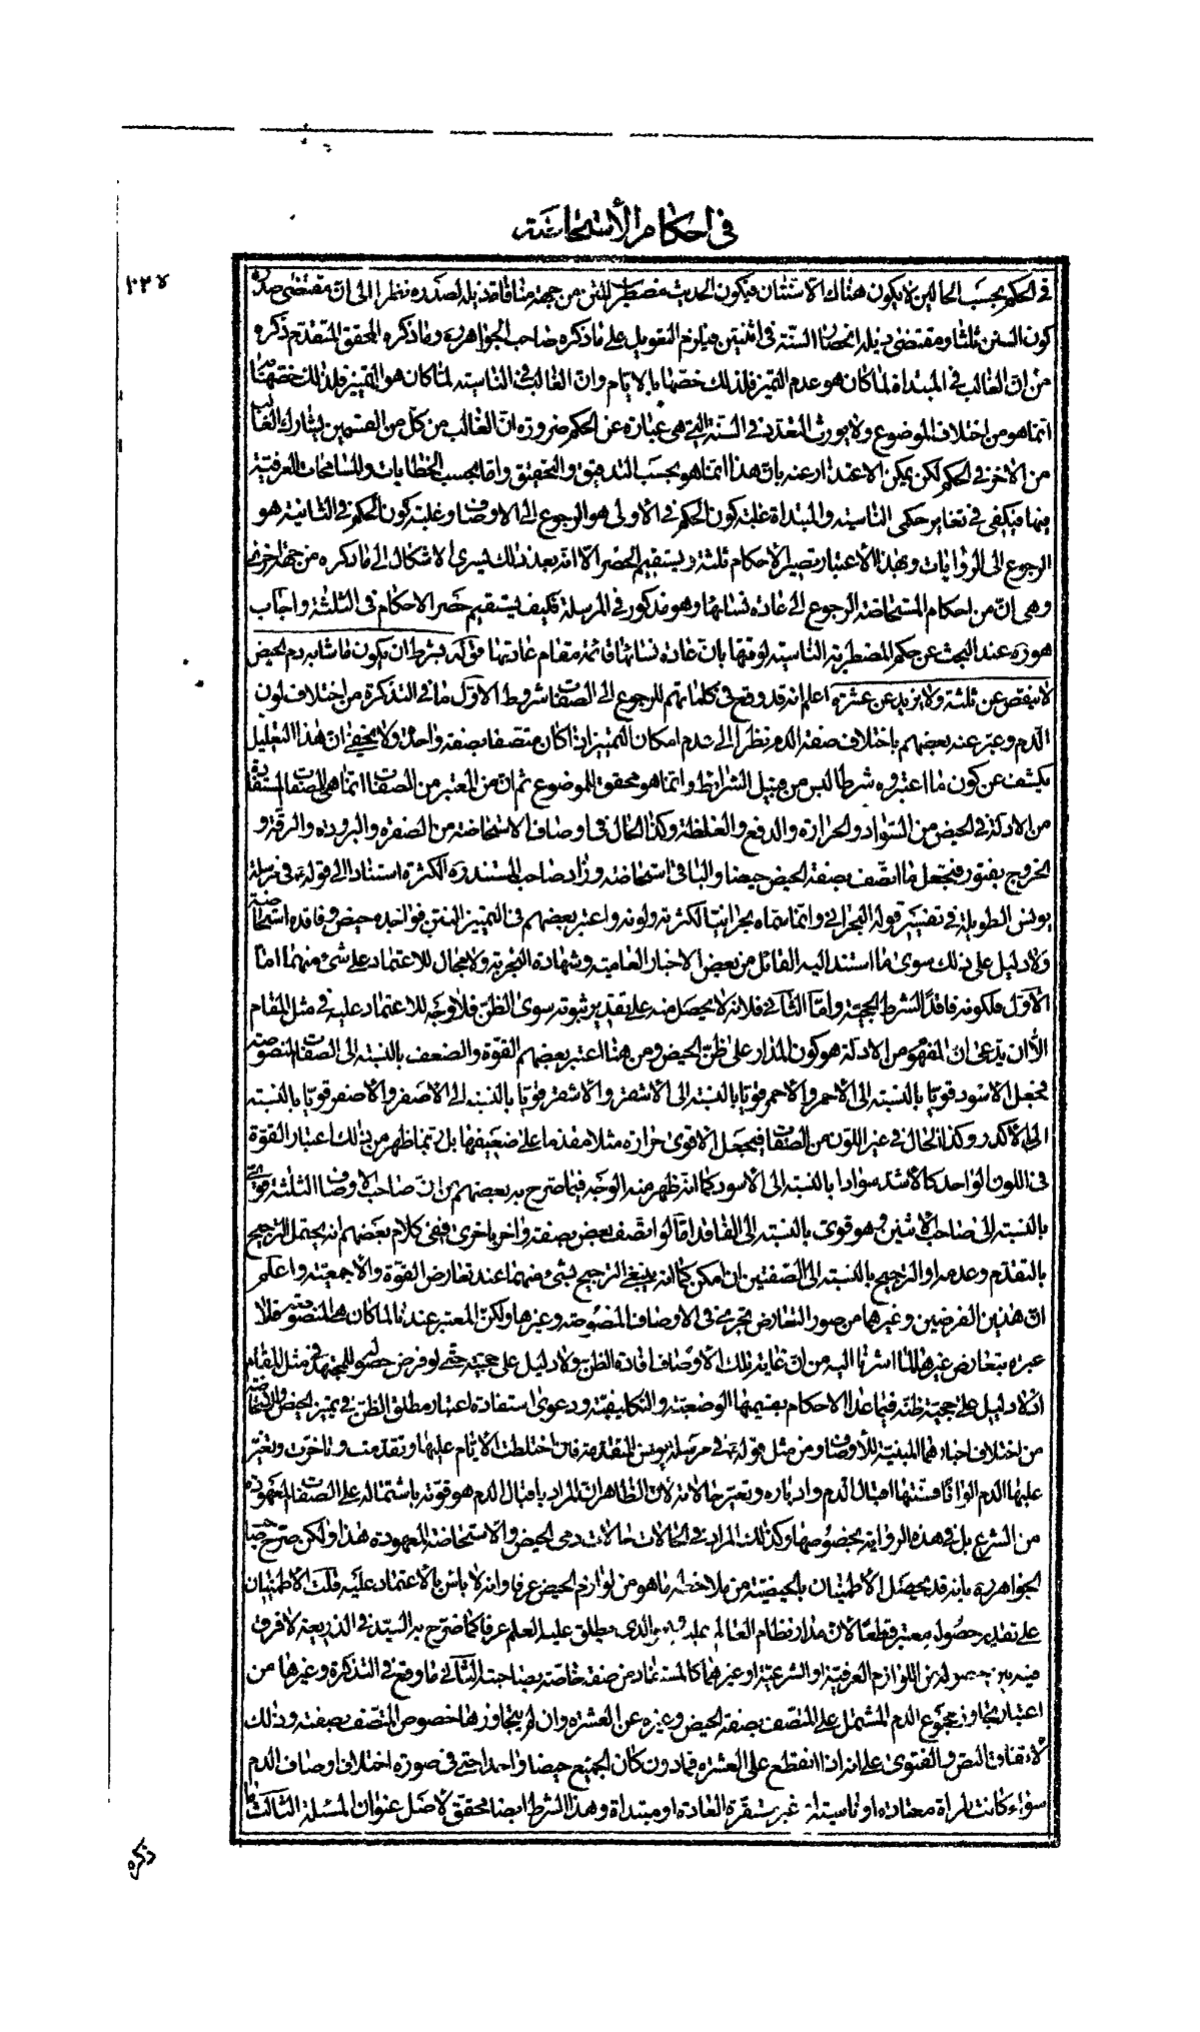 في احكام الأستحاضة
٢٢٧
في الحكم بحسب الحالين لا يكون هناك الاسنتان فيكون الحديث مضطرب المتن من جهة منافاة ذيله لصدره نظرا الى ان مقتضى صدره
كون السنن ثلثا ومقتضى ذيله انحصار السنة في اثنتين فيلزم التعويل على ما ذكره صاحب الجواهر ره وما ذكره المحقق المتقدم ذكره
من ان الغالب في المبتداة لما كان هو عدم التميز فلذلك خصها بالايام وان الغالب في الناسية لما كان هو التميز فلذلك خصها
انما هو من اختلاف الموضوع ولا يورث التعدد في السنة التي هي عبارة عن الحكم ضرورة ان الغالب من كل من القسمين يشارك الغالب
من الاخر في الحكم لكن يمكن الاعتذار عنه بان هذا انما هو بحسب التدقيق والتحقيق واما بحسب الخطابات والمسامحات العرفية
فيها فيكفي في تغاير حكمي الناسية والمبتداة غلبة كون الحكم في الأولى هو الرجوع الى الاوصاف وغلبة كون الحكم في الثانية هو
الرجوع الى الروايات وبهذا الأعتبار يصير الأحكام ثلثة ويستقيم الحصر الا انه بعد ذلك يسرى الاشكال الى ما ذكره من جهة اخرى
وهي ان من احكام المستحاضة الرجوع الى عادة نسائها وهو مذكور في المرسلة فكيف يستقيم حصر الاحكام في الثلثة واجاب
هو ره عند البحث عن حكم المضطربة الناسية لوقتها بان عادة نسائها قائمة مقام عادتها قوله بشرط ان يكون ما شابه دم الحيض
لا ينقص عن ثلثة ولا يزيد عن عشرة اعلم انه قد وقع في كلماتهم للرجوع الى الصفات شروط الاول ما في التذكرة من اختلاف لون
الدم وعبر عنه بعضهم باختلاف صفة الدم نظرا الى عدم امكان التميز اذا كان متصفا بصفة واحدة ولا يخفى ان هذا التعليل
يكشف عن كون ما اعتبروه شرطا ليس من قبيل الشرائط وانما هو محقق للموضوع ثم ان من المعتبر من الصفات انما هي الصفات المستفادة
من الادلة في الحيض من السواد والحرارة والدفع والغلظة وكذا الحال في اوصاف الاستحاضة من الصفرة والبرودة والرقة و
الخروج بفتور فتجعل ما اتصف بصفة الحيض حيضا والباقي استحاضة وزاد صاحب المستند ره الكثرة استنادا الى قوله ع في مرسلة
يونس الطويلة في تفسير قوله البحراني وانما سماه بحرانيا لكثرته ولونه واعتبر بعضهم في التميز النتن فواجده حيض وفاقده استحاضة
ولا دليل على ذلك سوى ما استند اليه القائل من بعض الاخبار العامية وشهادة التجربة ولا مجال للاعتماد على شئ منهما اما
الأول فلكونه فاقدا لشرط الحجية واما الثاني فلانه لا يحصل منه على تقدير ثبوته سوى الظن فلا وجه للاعتماد عليه في مثل المقام
الا ان يدعى ان المفهوم من الادلة هو كون المدار على ظن الحيض ومن هنا اعتبر بعضهم القوة والضعف بالنسبة الى الصفات المنصوصة
فجعل الاسود قويا بالنسبة الى الأحمر والاحمر قويا بالنسبة الى الأشقر والاشقر قويا بالنسبة الى الاصفر والاصفر قويا بالنسبة
الى الأكدر وكذا الحال في غير اللون من الصفات فيجعل الاقوى حرارة مثلا مقدما على ضعيفها بل ربما ظهر من ذلك اعتبار القوة
في اللون الواحد كالأشد سوادا بالنسبة الى الأسود كما انه ظهر منه الوجه فيما صرح به بعضهم من ان صاحب الاوصاف الثلثة قوي
بالنسبة الى صاحب الأثنين وهو قوى بالنسبة الى الفاقد اما لو اتصف بعض بصفة واخر باخرى ففي كلام بعضهم انه يحتمل الترجيح
بالتقدم وعدمه او الترجيح بالنسبة الى الصفتين ان امكن كما انه ينبغي الترجيح بشئ منهما عند تعارض القوة والأجمعية واعلم
ان هذين الفرضين وغيرهما من صور التعارض تجري في الاوصاف المنصوصة وغيرها ولكن المعتبر عندنا لما كان هي المنصوصة فلا
عبرة بتعارض غيرها لما اشرنا اليه من ان غاية تلك الأوصاف افادة الظن ولا دليل على حجيته حتى لو فرض حصوله للمجتهد في مثل المقام
اذ لا دليل على حجية ظنه فيما عدا الاحكام بقسميها الوضعية والتكليفية ودعوى استفادة اعتبار مطلق الظن في تميز الحيض والاستحاضة
من اختلاف اخبارهما المبنية للأوصاف ومن مثل قوله ع في مرسلة يونس المتقدمة فان اختلطت الايام عليها وتقدمت وتاخرت وتغير
عليها الدم الوانا فسنتها اقبال الدم وادباره وتغير حالاته لأن الظاهر ان المراد باقبال الدم هو قوته باشتماله على الصفات المعهودة
من الشرع بل في هذه الرواية بخصوصها وكذلك المراد في الحالات حالات دمى الحيض والاستحاضة المعهودة هذا ولكن صرح صاحب
الجواهر ره بانه قد يحصل الأطمئنان بالحيضية من ملاحظة ما هو من لوازم الحيض عرفا وانه لا باس بالاعتماد عليه قلت الاطمئنان
على تقدير حصوله معتبر قطعا لان مدار نظام العالم عليه وهو الذي يطلق عليه العلم عرفا كما صرح به السيد في الذريعة لا فرق
فيه بين حصوله من اللوازم العرفية او الشرعية او غيرهما كالمستفاد من صفة خاصة بصاحبته الثاني ما وقع في التذكرة وغيرها من
اعتبار تجاوز مجموع الدم المشتمل على المتصف بصفة الحيض وغيره عن العشرة وان لم يتجاوزها خصوص المتصف بصفته وذلك
لاتفاق النص والفتوى على انه اذا انقطع على العشرة فما دون كان الجميع حيضا واحدا حتى في صورة اختلاف اوصاف الدم
سواء كانت المراة معتادة او ناسية او غير مستقرة العادة او مبتداة وهذا الشرط ايضا محقق لأصل عنوان المسئلة الثالث ما
ذكره